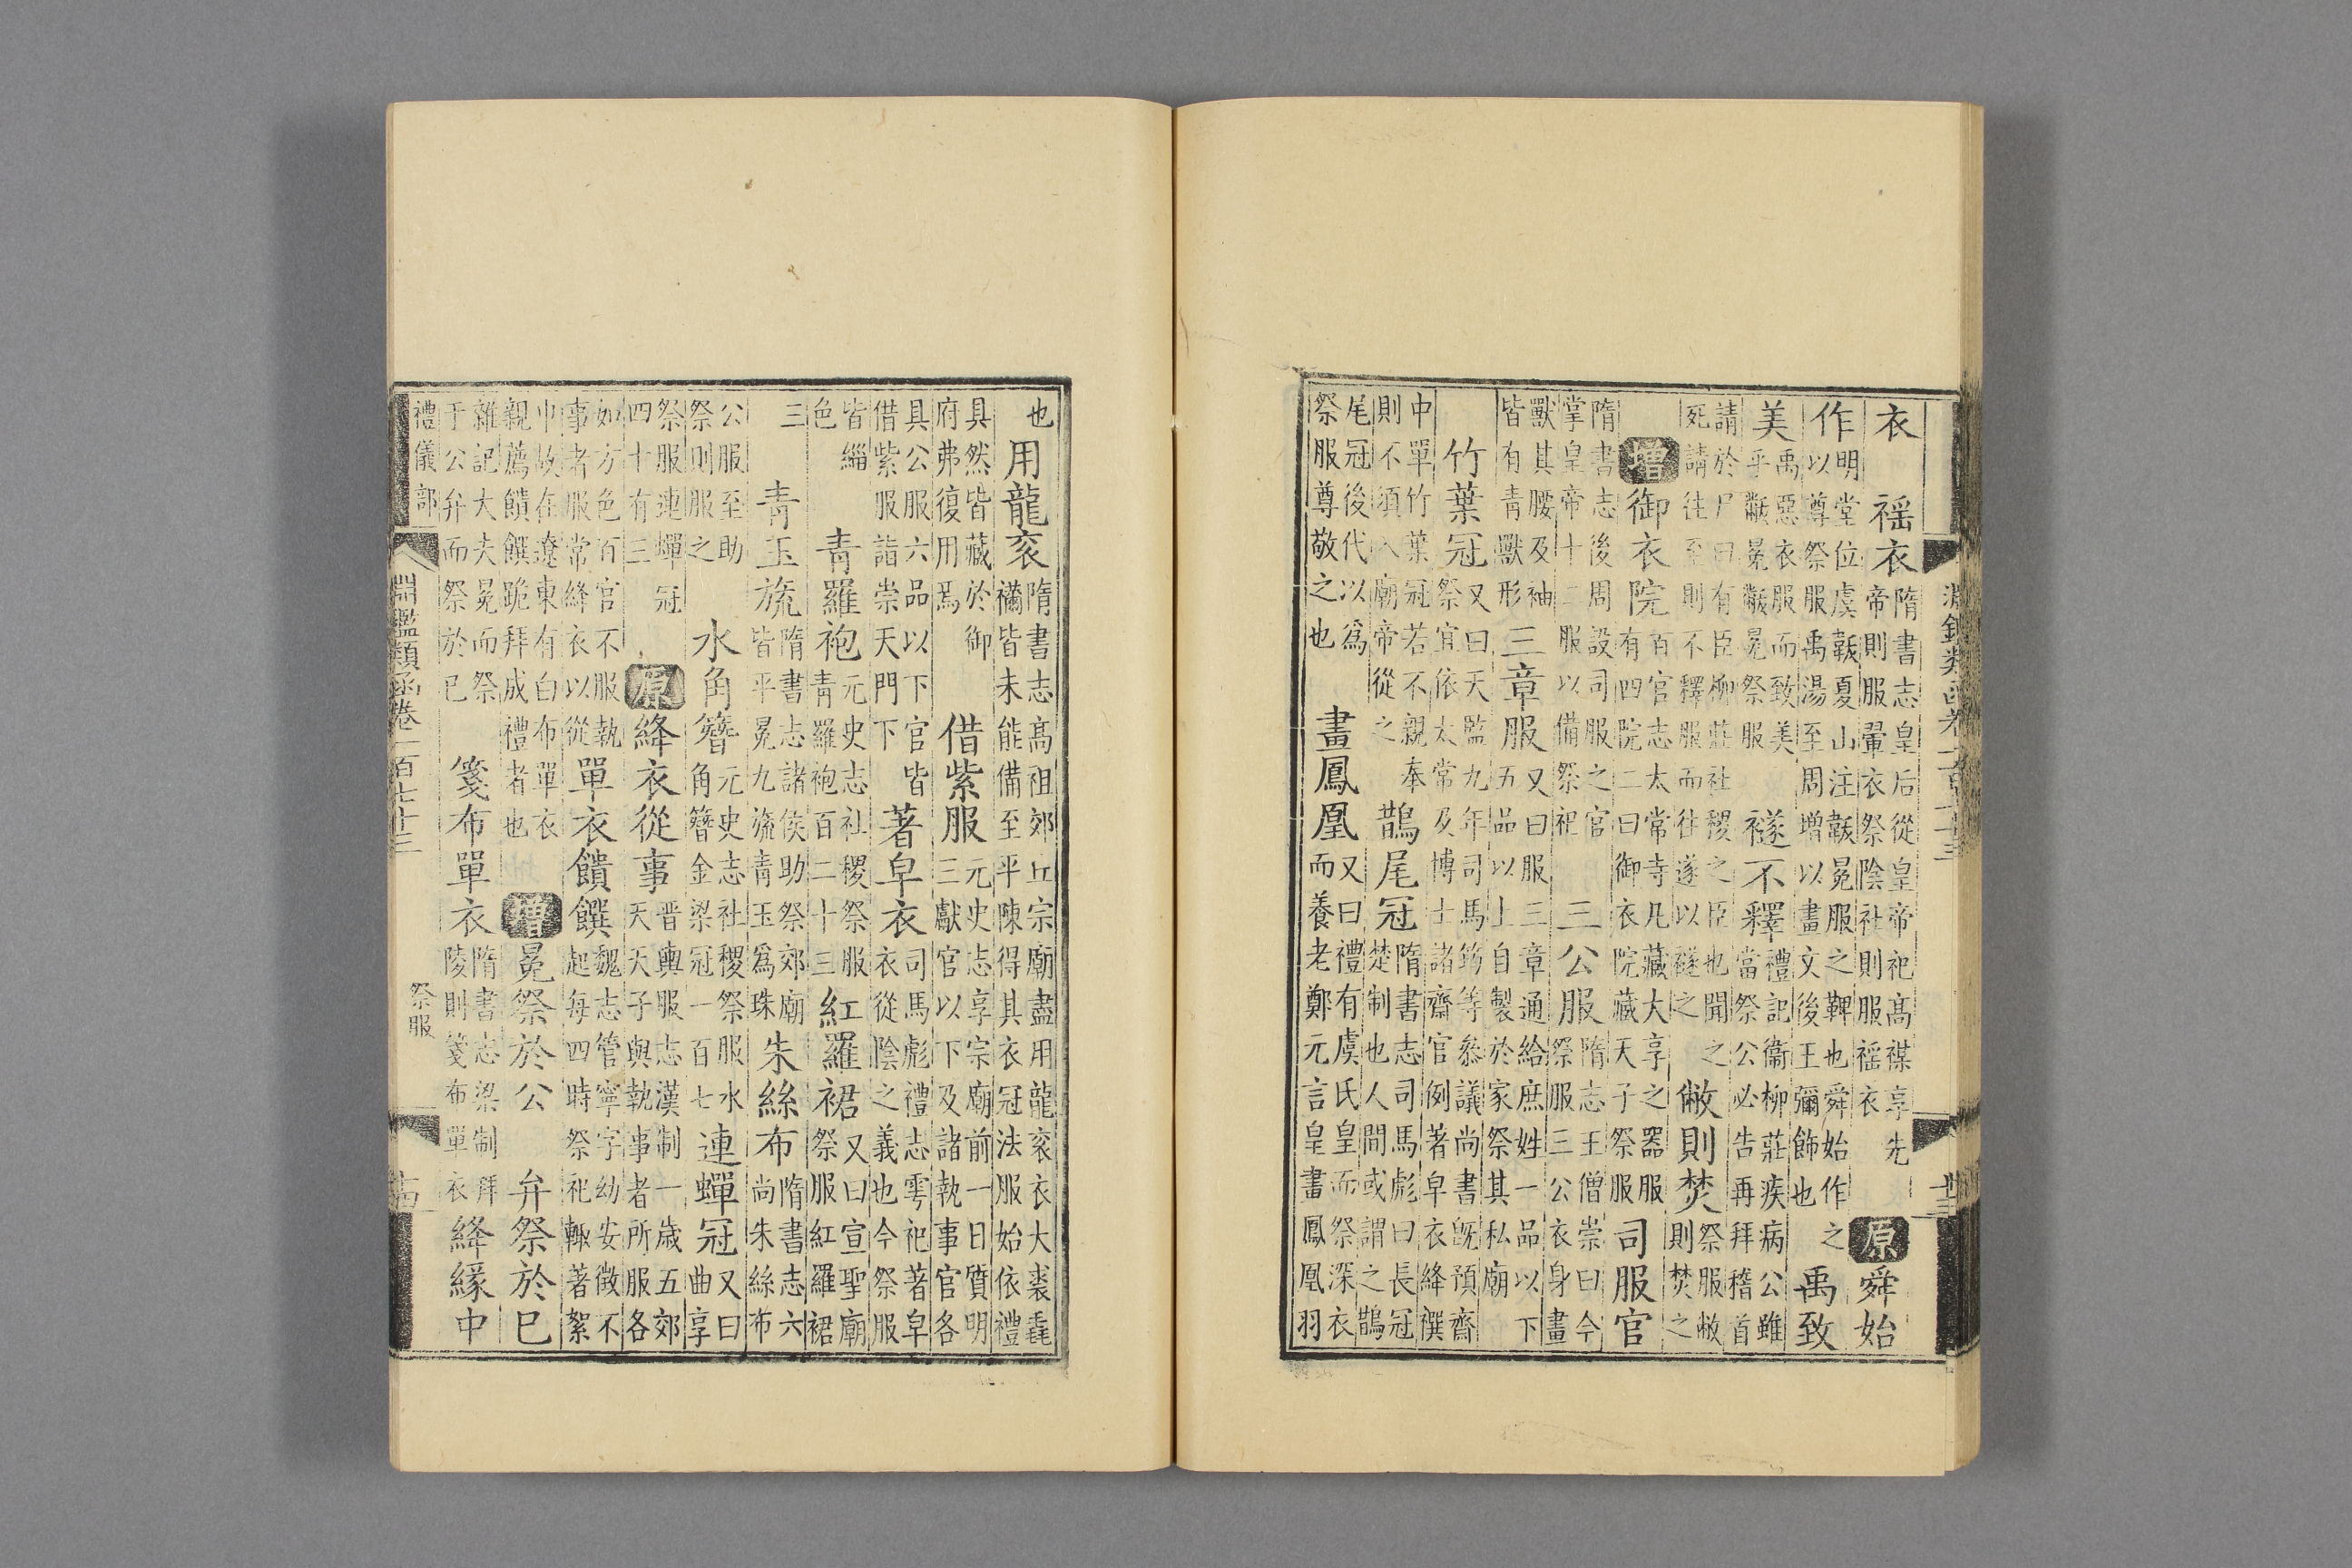 淵鑑類函卷一百七十三
衣　䄖衣隋書志皇后從皇帝祀髙禖享先帝則服翬衣祭陰社則服䄖衣　原舜始
作明堂位虞韍夏山注韍冕服之鞸也舜始作之以尊祭服禹湯至周增以畫文後王彌飾也　禹致
美禹惡衣服而致美乎黻冕黻冕祭服　襚不釋禮記衞柳莊疾病公雖當祭公必告再拜稽首
請於尸曰有臣柳莊社稷之臣也聞之死請往至則不釋服而往遂以襚之　敝則焚祭服敝則焚之
增御衣院百官志太常寺凡藏大享之器服有四院二曰御衣院藏天子祭服　司服官
隋書志後周設司服之官掌皇帝十二服以備祭祀　三公服隋志王僧崇曰今祭服三公衣身畫
獸其腰及袖皆有青獸形　三章服又曰服三章通給庶姓一品以下五品以上自製於家祭其私廟
竹葉冠又曰天監九年司馬筠等叅議尚書旣預齋祭宜依太常及博士諸齋官例著皁衣絳襈
中單竹葉冠若不親奉則不須入廟帝從之　鵲尾冠隋書志司馬彪曰長冠楚制也人間或謂之鵲
尾冠後代以爲祭服尊敬之也　畫鳳凰又曰禮有虞氏皇而祭深衣而養老鄭元言皇畫鳳凰羽
也　用龍衮隋書志髙祖郊丘宗廟盡用龍衮衣大裘毳襺皆未能備至平陳得其衣冠法服始依禮
具然皆藏於御府弗復用焉　借紫服元史志享宗廟前一日質明三獻官以下及諸執事官各
具公服六品以下官皆借紫服詣崇天門下　著皁衣司馬彪禮志雩祀著皁衣從陰之義也今祭服
皆緇色　青羅袍元史志社稷祭服青羅袍百二十三　紅羅裙又曰宣聖廟祭服紅羅裙
三　青玉旒隋書志諸侯助祭郊廟皆平冕九旒青玉爲珠　朱絲布隋書志六尚朱絲布
公服至助祭則服之　水角簪元史志社稷祭服水角簪金梁冠一百七　連蟬冠又曰曲享
祭服連蟬冠四十有三　原絳衣從事晋輿服志漢制一歲五郊天天子與執事者所服各
如方色百官不服執事者服常絳衣以從　單衣饋饌魏志管寧字幼安徵不起每四時祭祀輙著絮
巾故在遼東有白布單衣親薦饋饌跪拜成禮者也　增冕祭於公　弁祭於巳
雜記大夫冕而祭于公弁而祭於巳　箋布單衣隋書志梁制拜陵則箋布單衣　絳緣中
禮儀部　淵鑑類函卷一百七十三　祭服　十四